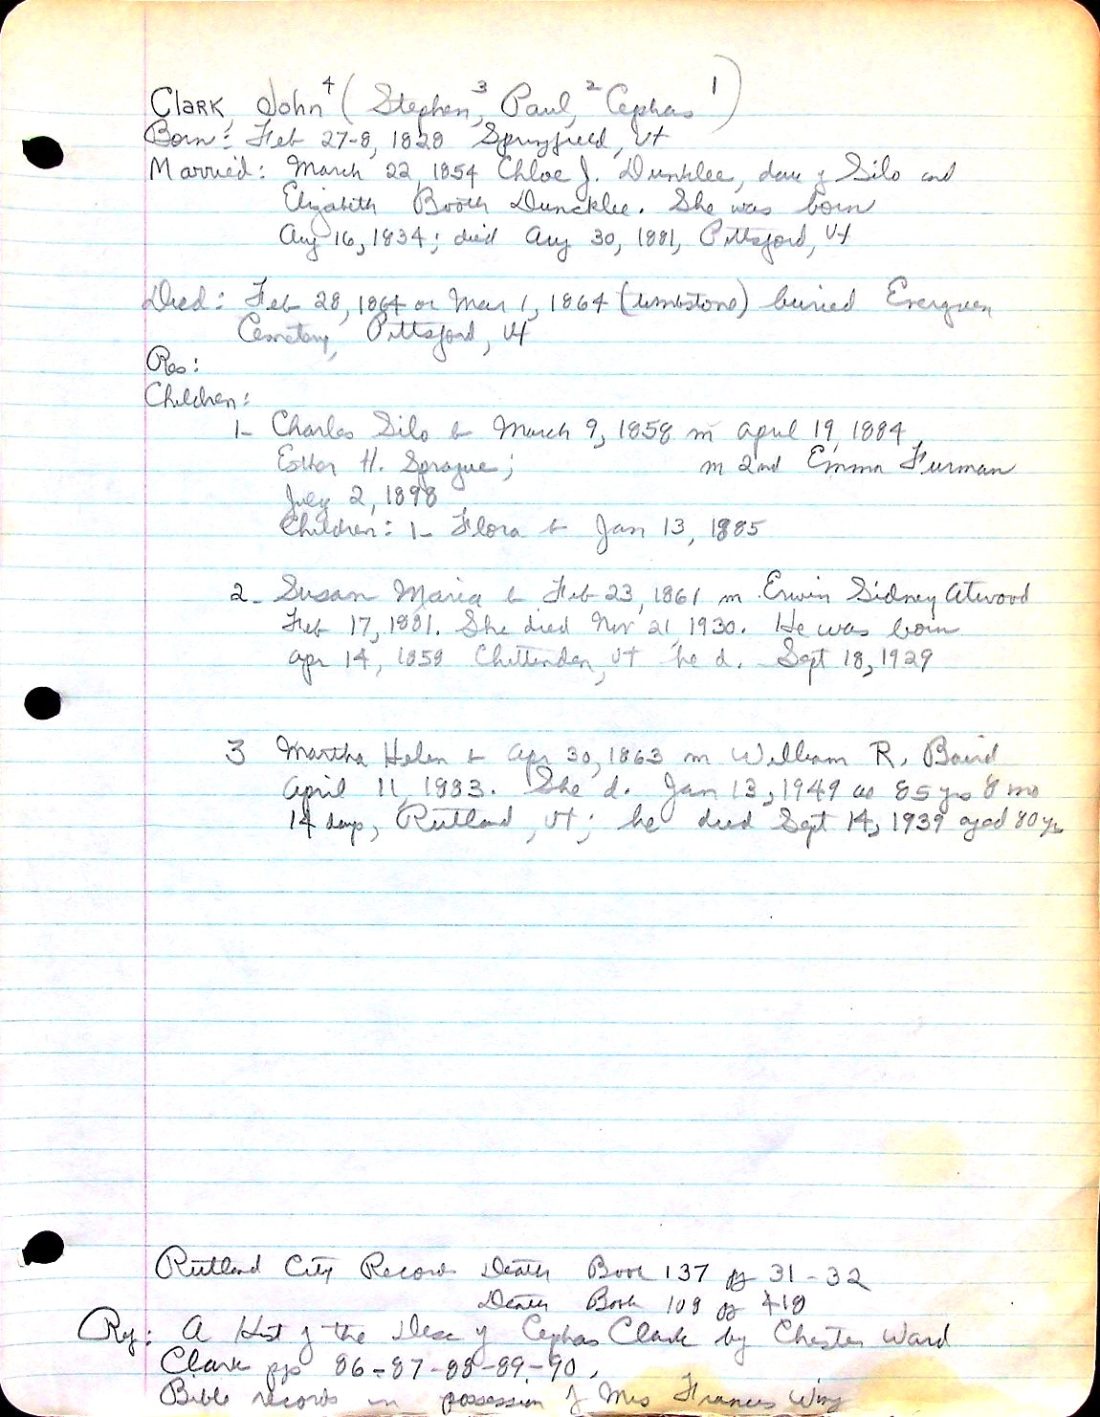 Clark, John⁴ ( Stephen,³ Paul,² Cephas¹ )
Born: Feb 27-8, 1828 Springfield, Vt
Married: March 22, 1854 Chloe J. Dunklee, dau of Silo and
Elizabeth Booth Duncklee. She was born
Aug 16, 1834; died Aug 30, 1881, Pittsford, Vt
Died: Feb 28, 1864 or Mar 1, 1864 (tombstone) buried Evergreen
Cemetery, Pittsford, Vt
Res:
Children:
1- Charles Silo b March 9, 1858 m April 19, 1884,
Esther H. Sprague; m 2nd Emma Furman
July 2, 1898
Children: 1- Flora b Jan 13, 1885
2- Susan Maria b Feb 23, 1861 m Erwin Sidney Atwood
Feb 17, 1881. She died Nov 21, 1930. He was born
Apr 14, 1858 Chittenden, Vt he d. Sept 18, 1929
3 Martha Helen b Apr 30, 1863 m William R. Baird
April 11, 1883. She d. Jan 13, 1949 ae 85 yrs 8 mo
14 days, Rutland, Vt; he died Sept 14, 1939 aged 80 yrs
Rutland City Records Death Book 137 pg 31-32
Death Book 108 pg 418
Ref: A Hist of the Desc of Cephas Clark by Chester Ward
Clark pgs 86-87-88-89-90,
Bible records in possession of Mrs Frances Wing